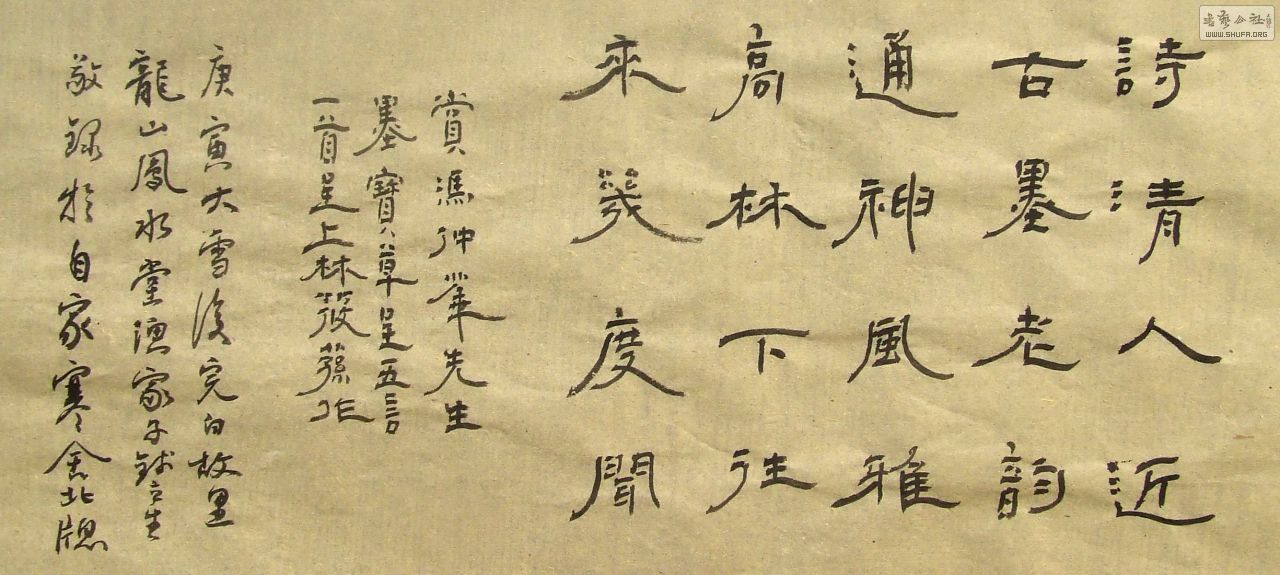 詩清人近
古墨老韵
通神風雅
高林下往
來幾度聞
賞馮仲華先生
墨寶草呈五言
一首呈上林筱蓀作
庚寅大雪後完白故里
龍山鳳水堂漁家子銊立生
敬録於自家寒舍北牕
書藝公社
WWW.SHUFA.ORG